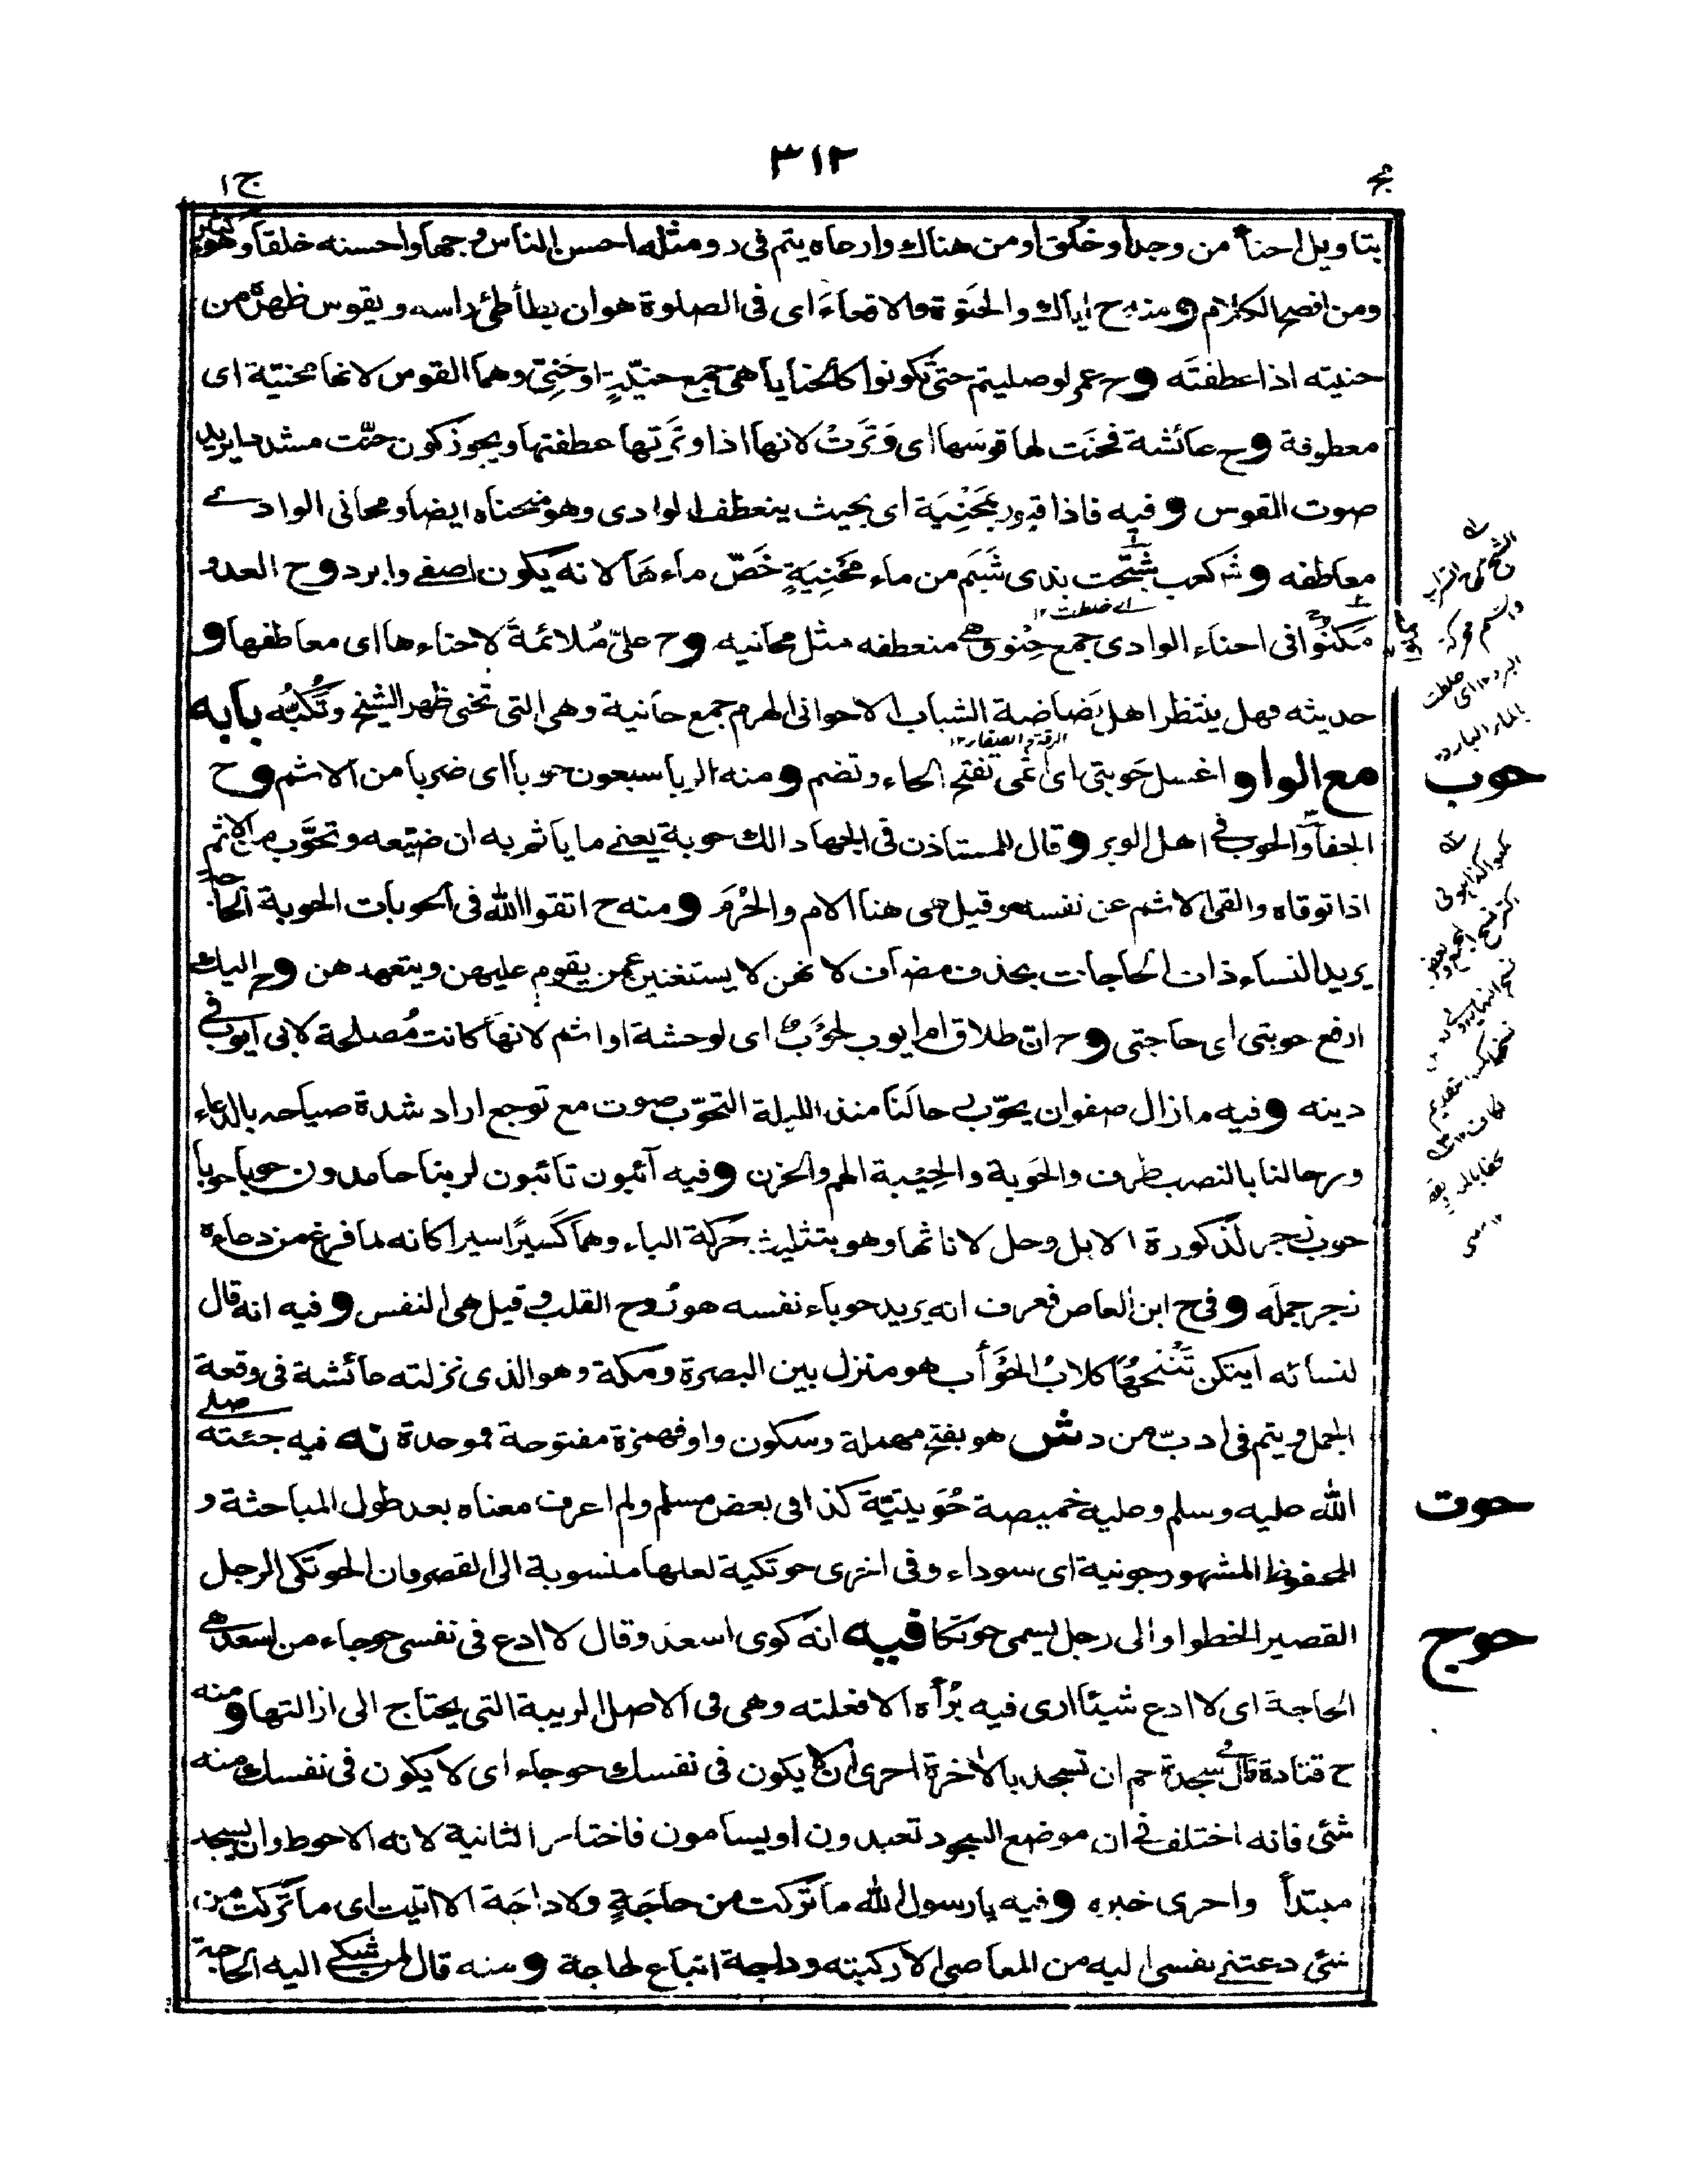 ٣١٢
ج١
بتاويل احناء من وجد او خلق او من هناك وارحاه يتم فى رد ومثله احسن الناس وجها واحسنه خلقا وهو كثير
ومن افصح الكلام ومنه ح اياك والحنوة والاقعاء اى فى الصلوة هو ان يطأطئ راسه ويقوس ظهره من
حنيته اذا عطفته وح عمر لو صليتم حتى تكونوا كالحنايا هى جمع حنيّة او حنىّ وهما القوس لانها محنيّة اى
معطوفة وح عائشة فحنت لها قوسها اى وَتَّرَتْ لانها اذا وترتها عطفتها ويجوز كون حنّت مشددا يريد
صوت القوس وفيه فاذا قبور بمَحْنِيَة اى بحيث ينعطف الوادى وهو منحناه ايضا ومحانى الوادے
معاطفه وش كعب شُجّت بذى شَبَم من ماء مَحْنِيَةٍ خَصّ ماءها لانه يكون اصفى وابرد وح العدو
اے خلطت ١٢
مكنوا فى احناء الوادى جمع حِنو وهى منعطفه مثل محانيه وح علىّ مُلائمةً لاحناءها اى معاطفها و
حديثه فهل ينتظر اهل بَضاضة الشباب الا حوانى الهرم جمع حانية وهى التى تحنى ظهر الشيخ وتُكبّه بابه
الرقة والصفاء ١٢
مع الواو اغسل حَوبتى اى اثمى تفتح الحاء وتضم ومنه الربا سبعون حوبا اى ضربا من الاثم وح
الجفاء والحوب فى اهل الوبر وقال للمستاذن فى الجهاد الك حوبة يعنى ما ياثم به ان ضيّعه وتحوّب من الاثم
اذا توقاه والقى الاثم عن نفسه وقيل هى هنا الام والحُرَم ومنه ح اتقوا الله فى الحوبات الحوبة الحاجة
يريد النساء ذات الحاجات بحذف مضاف لانهن لا يستغنين عمن يقوم عليهن ويتعهد هن وح اليك
ارفع حوبتى اى حاجتى وح ان طلاق ام ايوب لحُوَبٌ اى لوحشة او اثم لانها كانت مُصلحة لابى ايوب فى
دينه وفيه مازال صفوان يحوّب رحالَنا منذ الليلة التحوّب صوت مع توجع اراد شدة صياحه بالدعاء
ورحالنا بالنصب ظرف والحَوبة والحِيْبة الهم والحزن وفيه آئبون تائبون لربنا حامدون حوبا حوبا
حوب زجر لذكورة الابل وحل لاناثها وهو بتثليث حركة الباء وهما كَسيرًا سيرا كانه لما فرغ من دعاءه
زجر جمله وفى ح ابن العاص فعرف انه يريد حوباء نفسه هو رُوح القلب وقيل هى النفس وفيه انه قال
لنسائه ايتكن تَنْبحُها كلابُ الحَوْأب هو منزل بين البصرة ومكة وهو الذى نزلته عائشة فى وقعة
الجمل ويتم فى ادبّ من د ش هو بفتح مهملة وسكون واو فهمزة مفتوحة فموحدة نه فيه جئته صلے
الله عليه وسلم وعليه خميصة حُوَيتيّة كذا فى بعض مسلم ولم اعرف معناه بعد طول المباحثة و
المحفوظ المشهور جونية اى سوداء وفى اخرى حوتكية لعلها منسوبة الى القصر وان الحوتكى الرجل
القصير الخطو او الى رجل يسمى حوتكا فيه انه كوى اسعد وقال لا ادع فى نفسى حوجاء من اسعد هى
الحاجة اى لا ادع شيئا ارى فيه بُرْأه الا فعلته وهى فى الاصل الريبة التى يحتاج الى ازالتها ومنه
ح قتادة قال فى سجدة حم ان تسجد بالاخرة احرى ان لا يكون فى نفسك حوجاء اى لا يكون فى نفسك منه
شئ فانه اختلف فى ان موضع السجود تعبدون او يسامون فاختار الثانية لانه الاحوط وان يسجد
مبتدأ واحرى خبره وفيه يا رسول الله ما تركت من حاجَةٍ ولا داجَة الا اتيت اى ما تركت من
شئ دعتنى نفسى اليه من المعاصى الا ركبته وداجة اتباع لحاجة ومنه قال لمن شكى اليه الحاجة
حوب
حوت
حوج